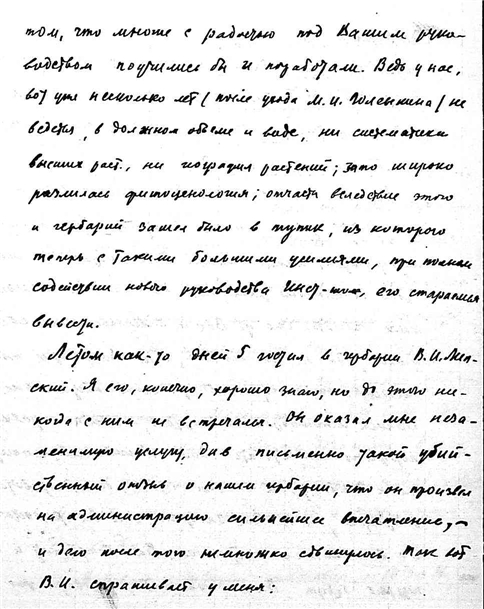 том, что многие с радостью под Вашим руко-
водством поучились бы и поработали. Ведь у нас,
вот уже несколько лет (после ухода М. И. Голенкина) не
ведется, в должном объеме и виде, ни систематика
высших раст., ни география растений; зато широко
разлилась фитоценология; отчасти вследствие этого
и гербарий зашел было в тупик, из которого
теперь с такими большими усилиями, при полном
содействии нового руководства Инст-том, его стараемся
вывести.
Летом как-то дней 5 гостил в гербарии В. И. Лип-
ский. Я его, конечно, хорошо знаю, но до этого ни-
когда с ним не встречался. Он оказал мне неза-
менимую услугу, дав письменно такой убий-
ственный отзыв о нашем гербарии, что он произвел
на администрацию сильнейшее впечатление, –
и дело после того немножко сдвинулось. Так вот
В. И. спрашивает у меня: